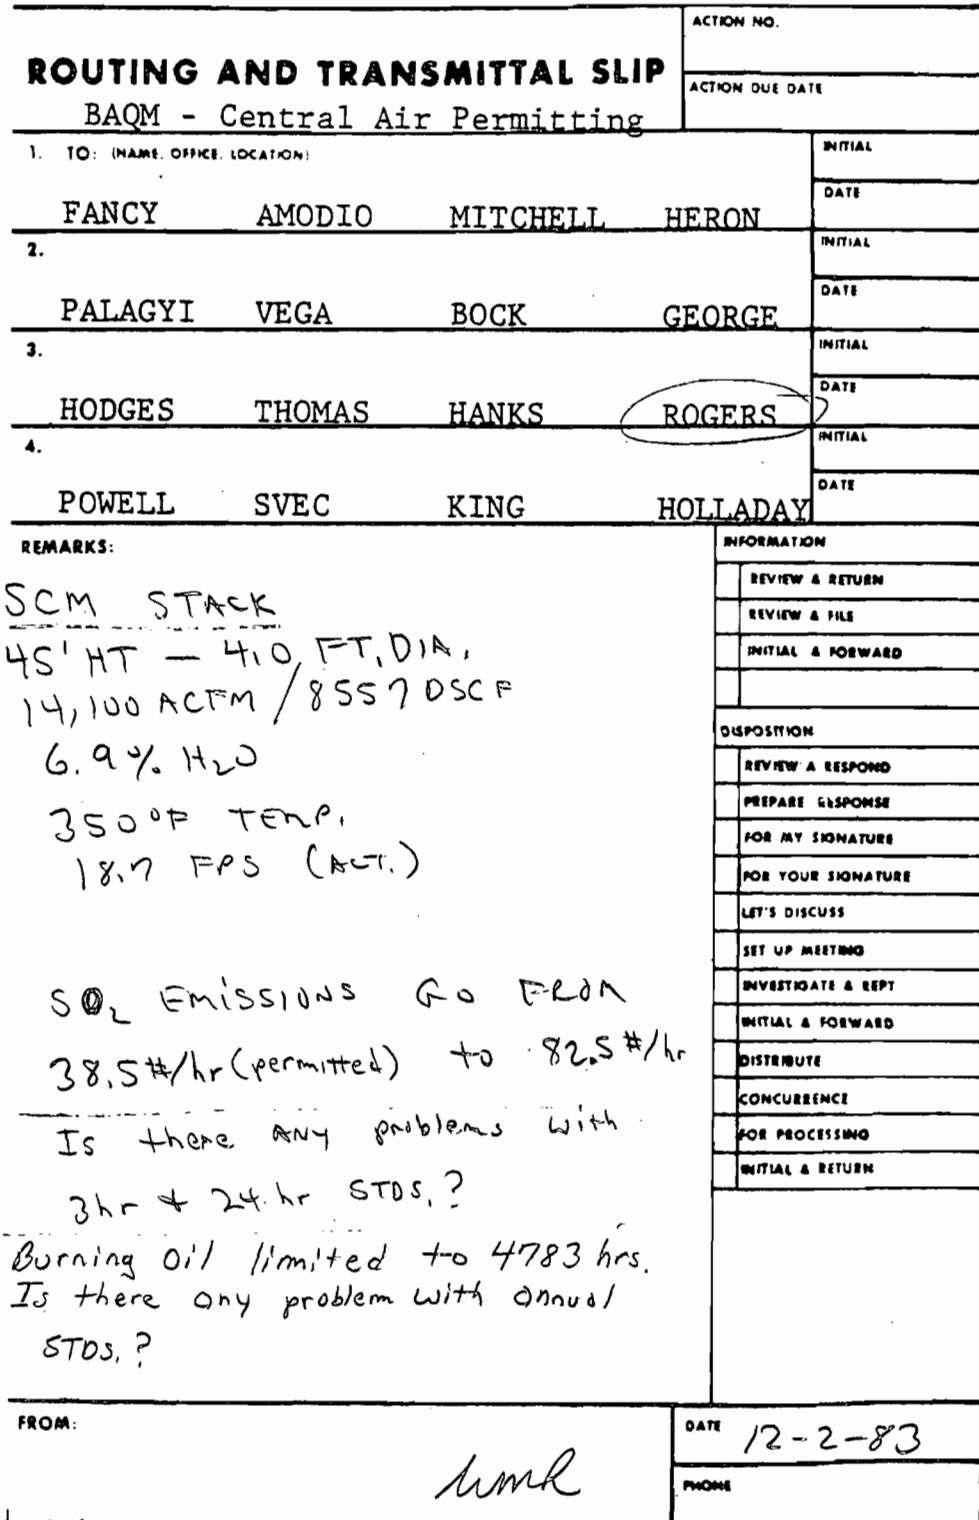 ACTION NO.
ROUTING AND TRANSMITTAL SLIP
ACTION DUE DATE
BAQM - Central Air Permitting
1. TO: (NAME, OFFICE, LOCATION)
INITIAL
DATE
FANCY AMODIO MITCHELL HERON
2.
INITIAL
DATE
PALAGYI VEGA BOCK GEORGE
3.
INITIAL
DATE
HODGES THOMAS HANKS ROGERS
4.
INITIAL
DATE
POWELL SVEC KING HOLLADAY
REMARKS:
SCM STACK
45' HT — 4.0 FT. DIA.
14,100 ACFM / 8557 DSCF
6.9% H2O
350°F TEMP.
18.7 FPS (ACT.)
SO2 EMISSIONS GO FROM
38.5#/hr (permitted) to 82.5#/hr
Is there ANY problems with
3hr & 24 hr STDS.?
Burning oil limited to 4783 hrs.
Is there any problem with annual
STDS.?
INFORMATION
REVIEW & RETURN
REVIEW & FILE
INITIAL & FORWARD
DISPOSITION
REVIEW & RESPOND
PREPARE RESPONSE
FOR MY SIGNATURE
FOR YOUR SIGNATURE
LET'S DISCUSS
SET UP MEETING
INVESTIGATE & REPT
INITIAL & FORWARD
DISTRIBUTE
CONCURRENCE
FOR PROCESSING
INITIAL & RETURN
FROM:
DATE 12-2-83
PHONE